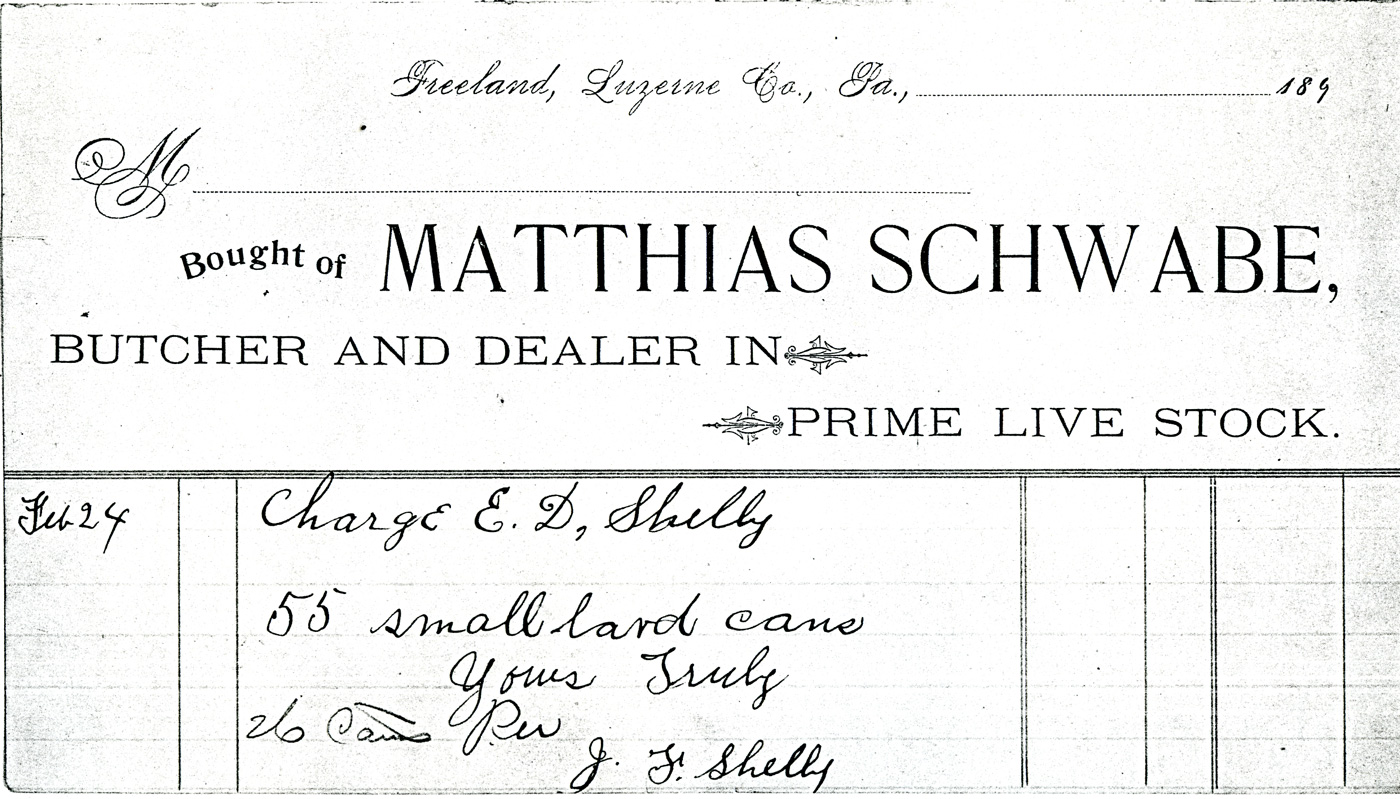 Freeland, Luzerne Co., Pa., 189
M
Bought of MATTHIAS SCHWABE,
BUTCHER AND DEALER IN
PRIME LIVE STOCK.
Feb 24 Charge E. D, Shelly
55 small lard cans
Yours Truly
26 Cans Per
J. F. Shelly